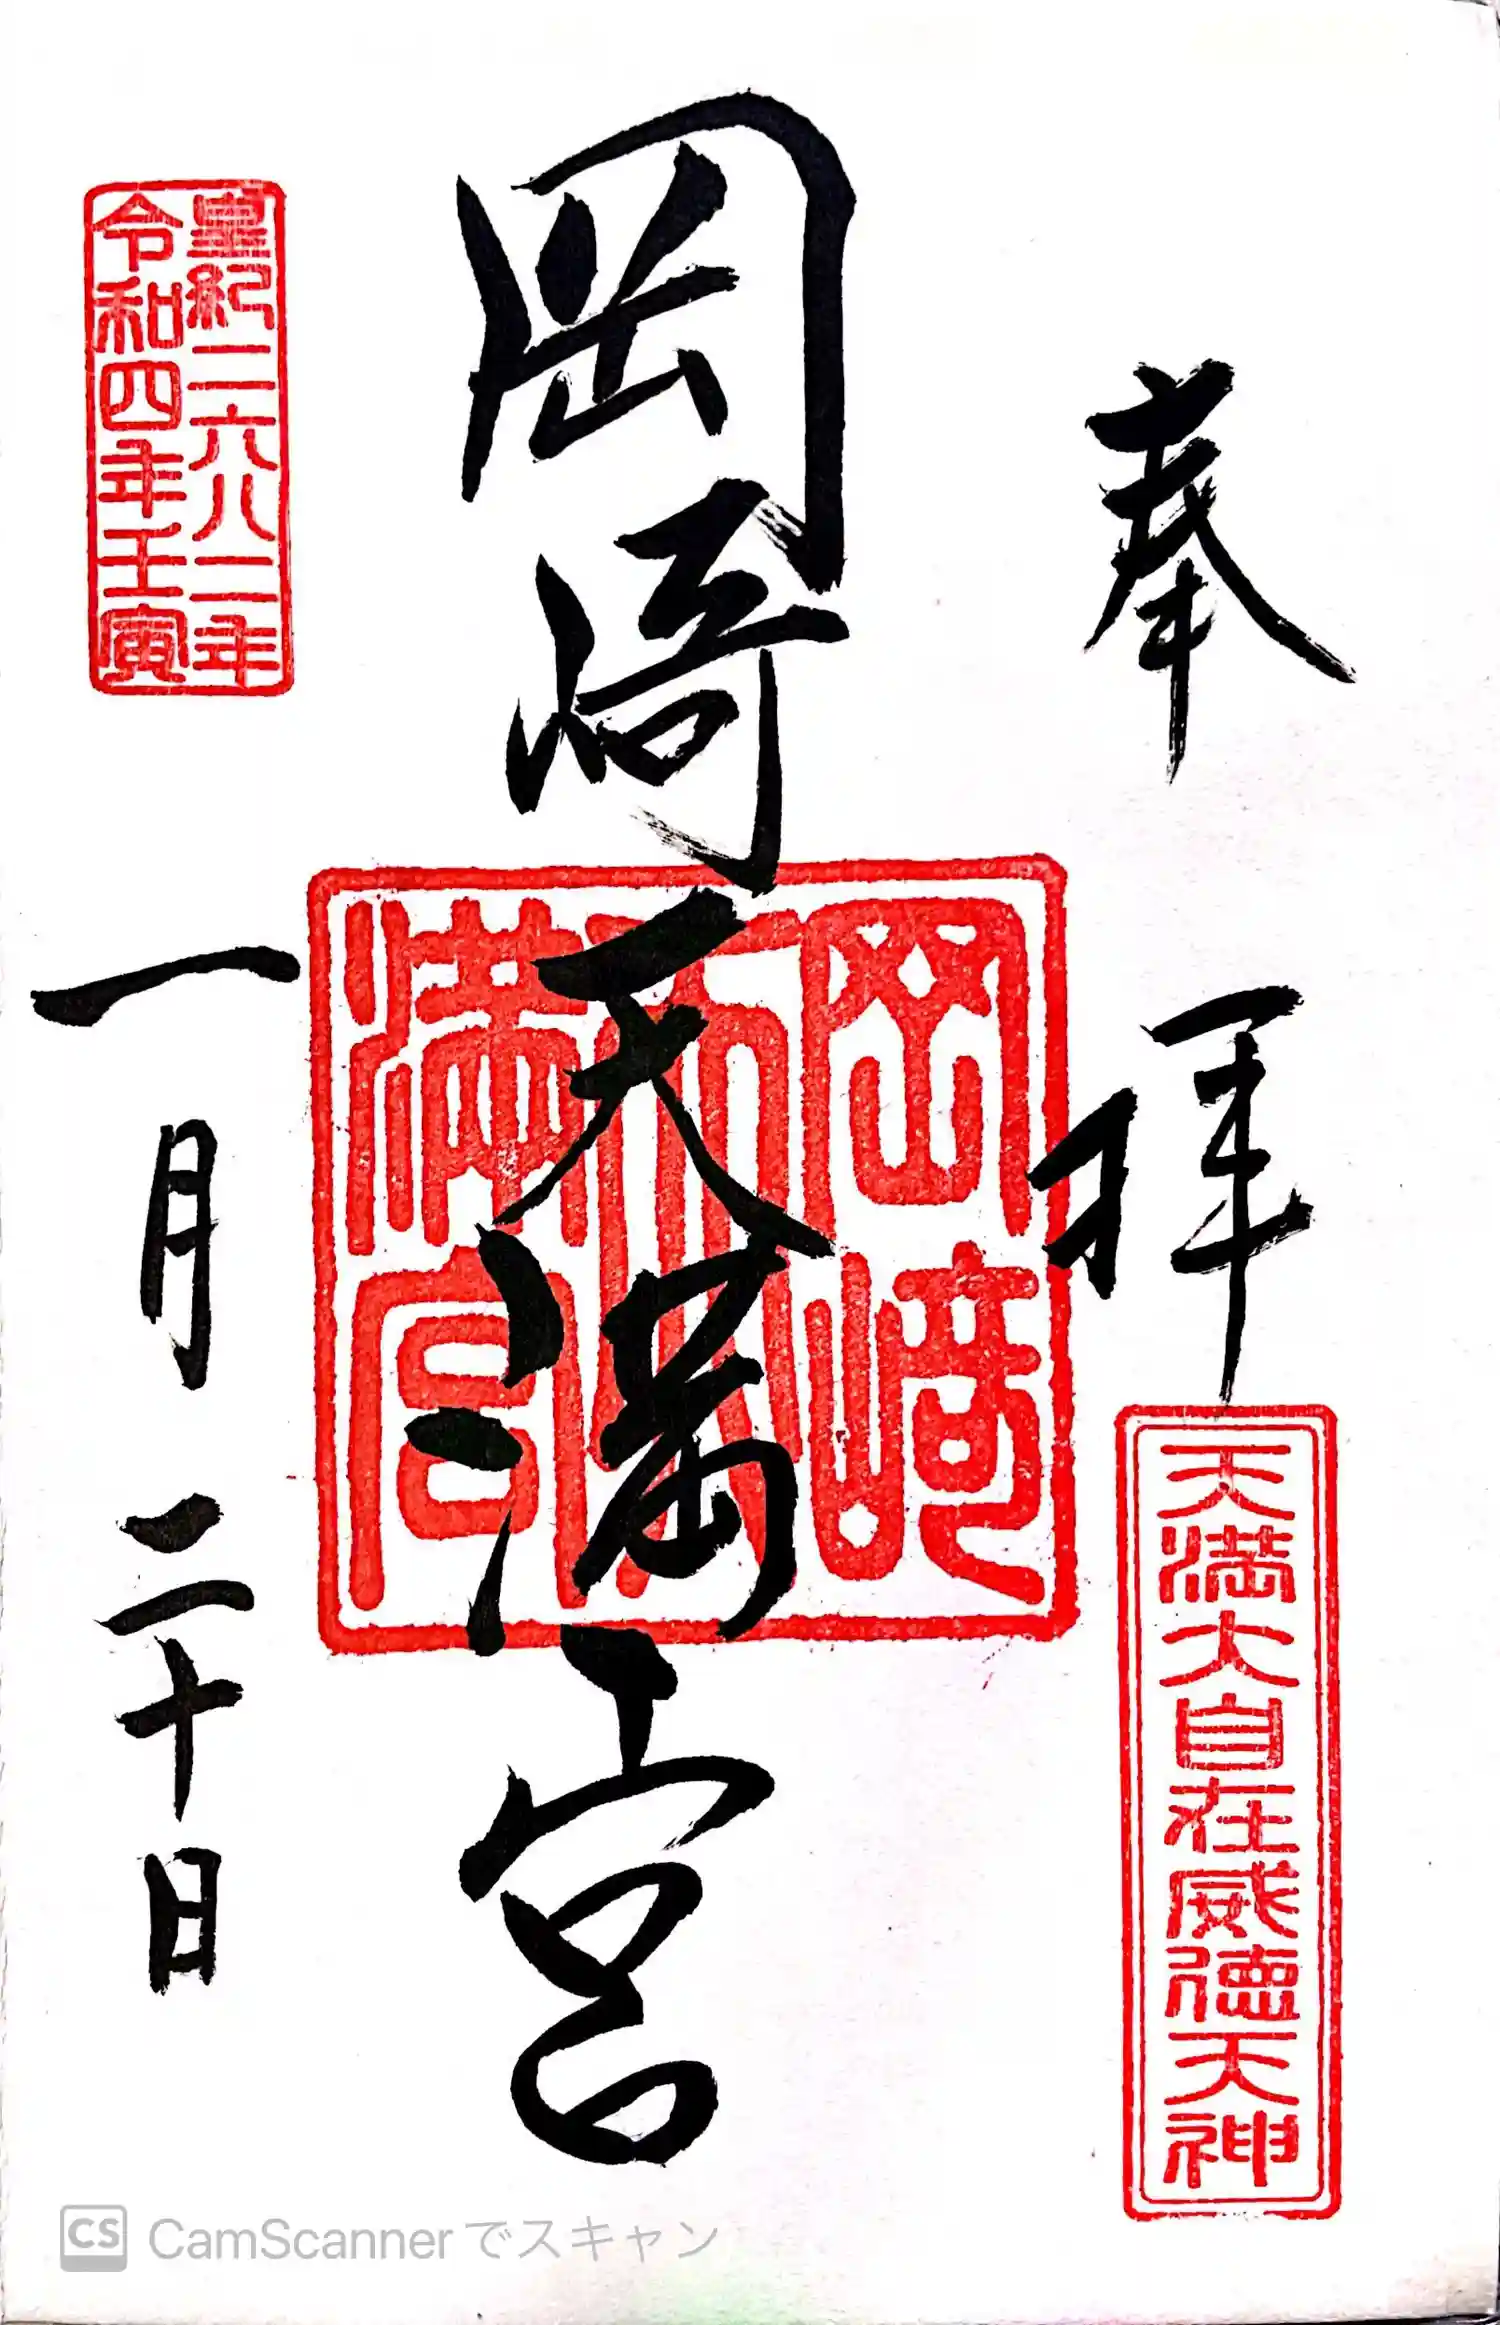 奉拝
天満大自在威徳天神
岡崎天満宮
岡崎天満宮
皇紀二六八二年
令和四年壬寅
一月二十日
CS CamScannerでスキャン